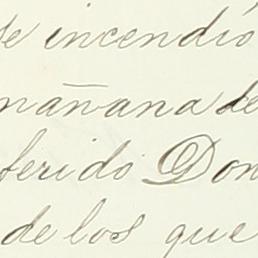 se incendió
mañana de
ferido Don
de los que